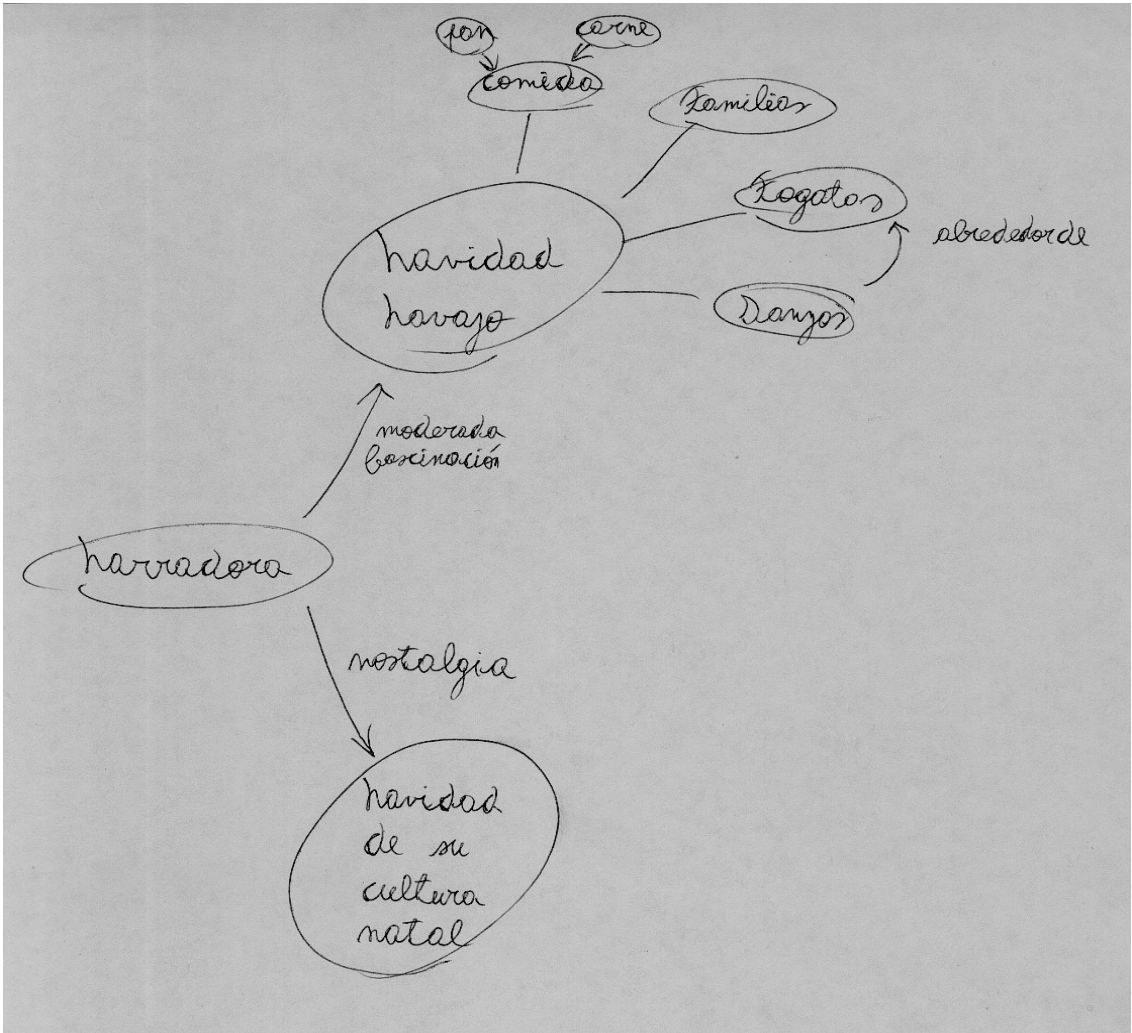 pan
carne
comida
Familias
Fogatas
alrededor de
Danzas
Navidad
Navajo
moderada
fascinación
Narradora
nostalgia
Navidad
de su
cultura
natal